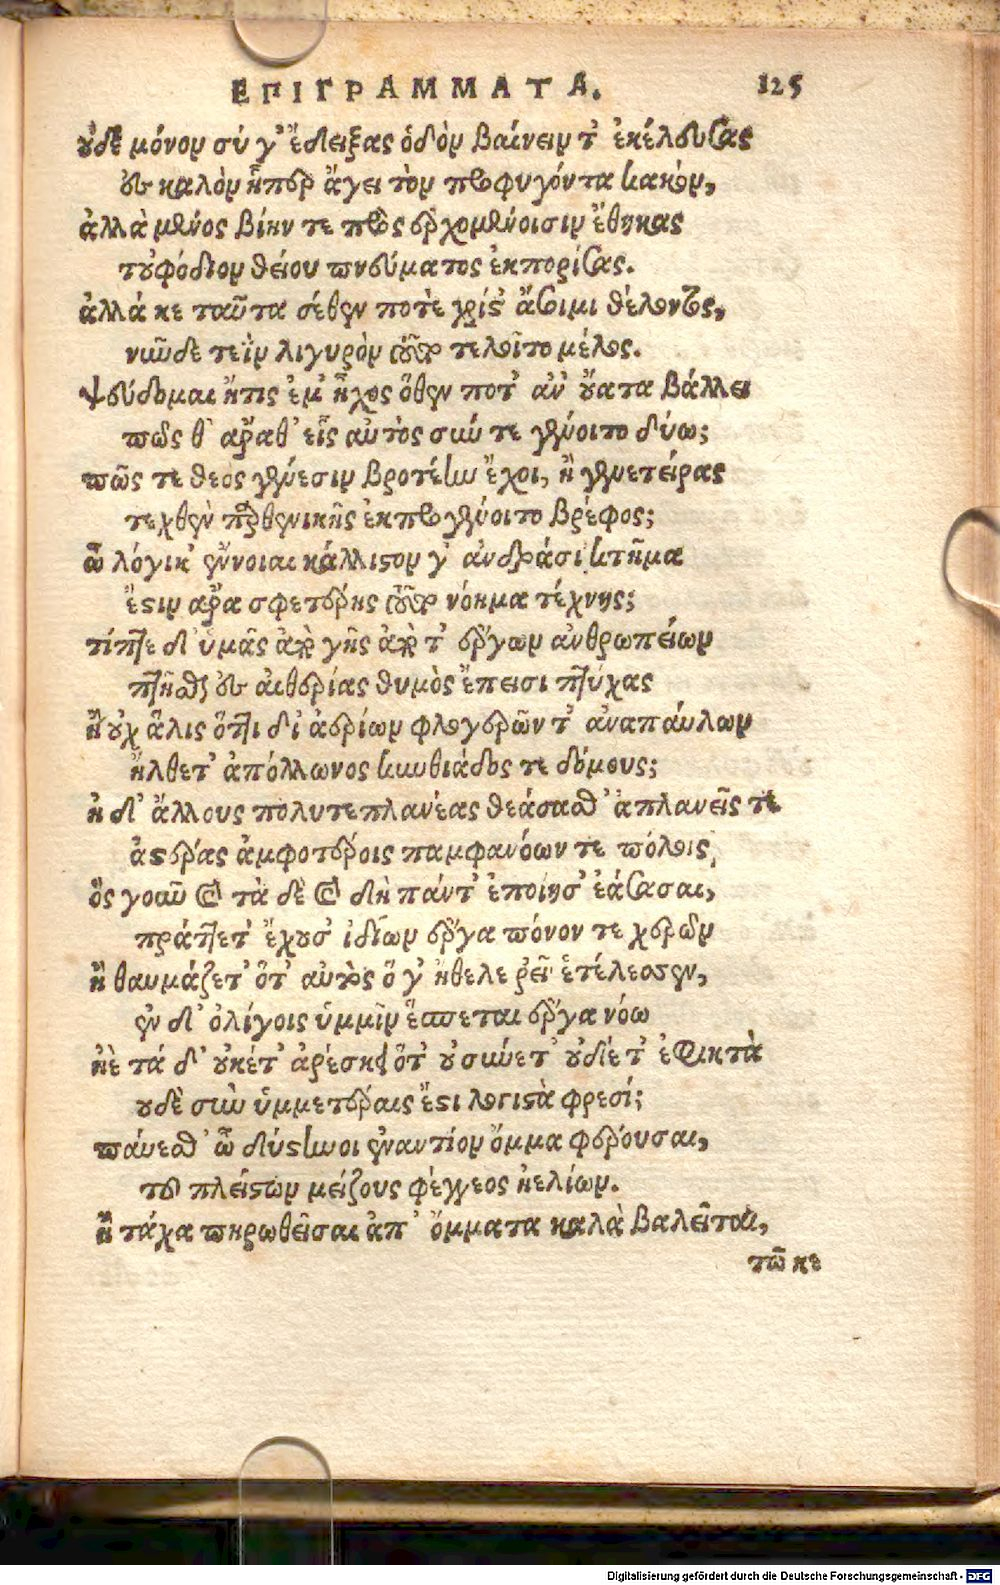 ΕΠΙΓΡΑΜΜΑΤΑ. 125
οὐδὲ μόνον σύ γ' ἔδειξας ὁδὸν βαίνειν τ' ἐκέλευσας
οὐ καλὸν ἧπερ ἄγει τὸν προφυγόντα κακὸν,
ἀλλὰ μένος βίην τε πρὸς ἐρχομένοισιν ἔθηκας
τοὐφόδιον θείου πνεύματος ἐκπορίσας.
ἀλλά κε ταῦτα σέθεν ποτὲ χρίς' ἄσιμι θέλοντος,
νῶϊ δὲ τεῒν λιγυρὸν τελοῖτο μέλος.
ψεύδομαι ἤτις ἐμ' ἦχος ὅθεν ποτ' ἀν' οὔατα βάλλει
πῶς θ' ἅμαθ' εἷς αὐτὸς σύν τε γένοιτο δύω;
πῶς τε θεος γένεσιν βροτέην ἔχοι, ἢ γενετείρας
τεχθὲν παρθενικῆς ἐκπρογένοιτο βρέφος;
ὦ λόγικ' ἔννοιαι κάλλιστον γ' ἀνδράσι κτῆμα
ἔστιν ἄρα σφετέρης νόημα τέχνης;
τίπτε δι' ὑμᾶς ἀπὸ γῆς ἀπὸ τ' ἔργων ἀνθρωπείων
οὐ αἰθερίας θυμὸς ἔπεισι πτύχας
ἢ οὐχ ἅλις ὅττι δι' ἀερίων φλογερῶν τ' ἀναπαύλων
ἤλθετ' ἀπόλλωνος κυνθιάδος τε δόμους;
ἠ δι' ἄλλους πολυτεπλανέας θεάσασθ' ἀπλανεῖς τε
ἀστέρας ἀμφοτέροις παμφανόων τε πόλοις,
ὃς γοῦν καὶ τὰ δὲ καὶ δὴ πάντ' ἐποίησ' ἐάσασαι,
πράττετ' ἔχουσ' ἰδίων ἔργα πόνον τε χερῶν
ἢ θαυμάζετ' ὅτ' αὐτὸς ὅ γ' ἤθελε ῥεῖ' ἐτέλεσσεν,
ἐν δ' ὀλίγοις ὑμμῖν ἕσπεται ἔργα νόω
ἠὲ τά δ' οὐκέτ' ἀρέσκει ὅτ' οὐ σύνετ' οὐδέ τ' ἐφικτὰ
οὐδὲ σὺν ὑμμετέραις ἔστι λογιστὰ φρεσί;
παύεσθ' ὦ δύστηνοι ἐναντίον ὄμμα φέρουσαι,
τοῦ πλείστων μείζους φέγγεος ἠελίων.
ἢ τάχα πηρωθεῖσαι ἀπ' ὄμματα καλὰ βαλεῖται,
τῶ κε
Digitalisierung gefördert durch die Deutsche Forschungsgemeinschaft - DFG